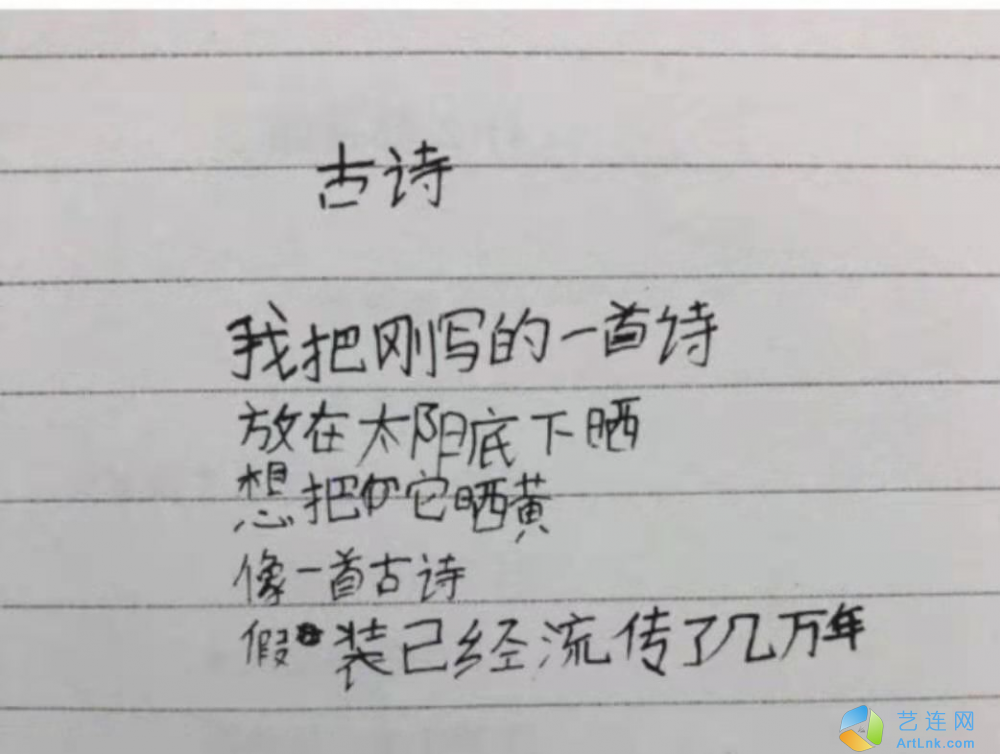 古诗
我把刚写的一首诗
放在太阳底下晒
想把它晒黄
像一首古诗
假装已经流传了几万年
艺连网
ArtLnk.com